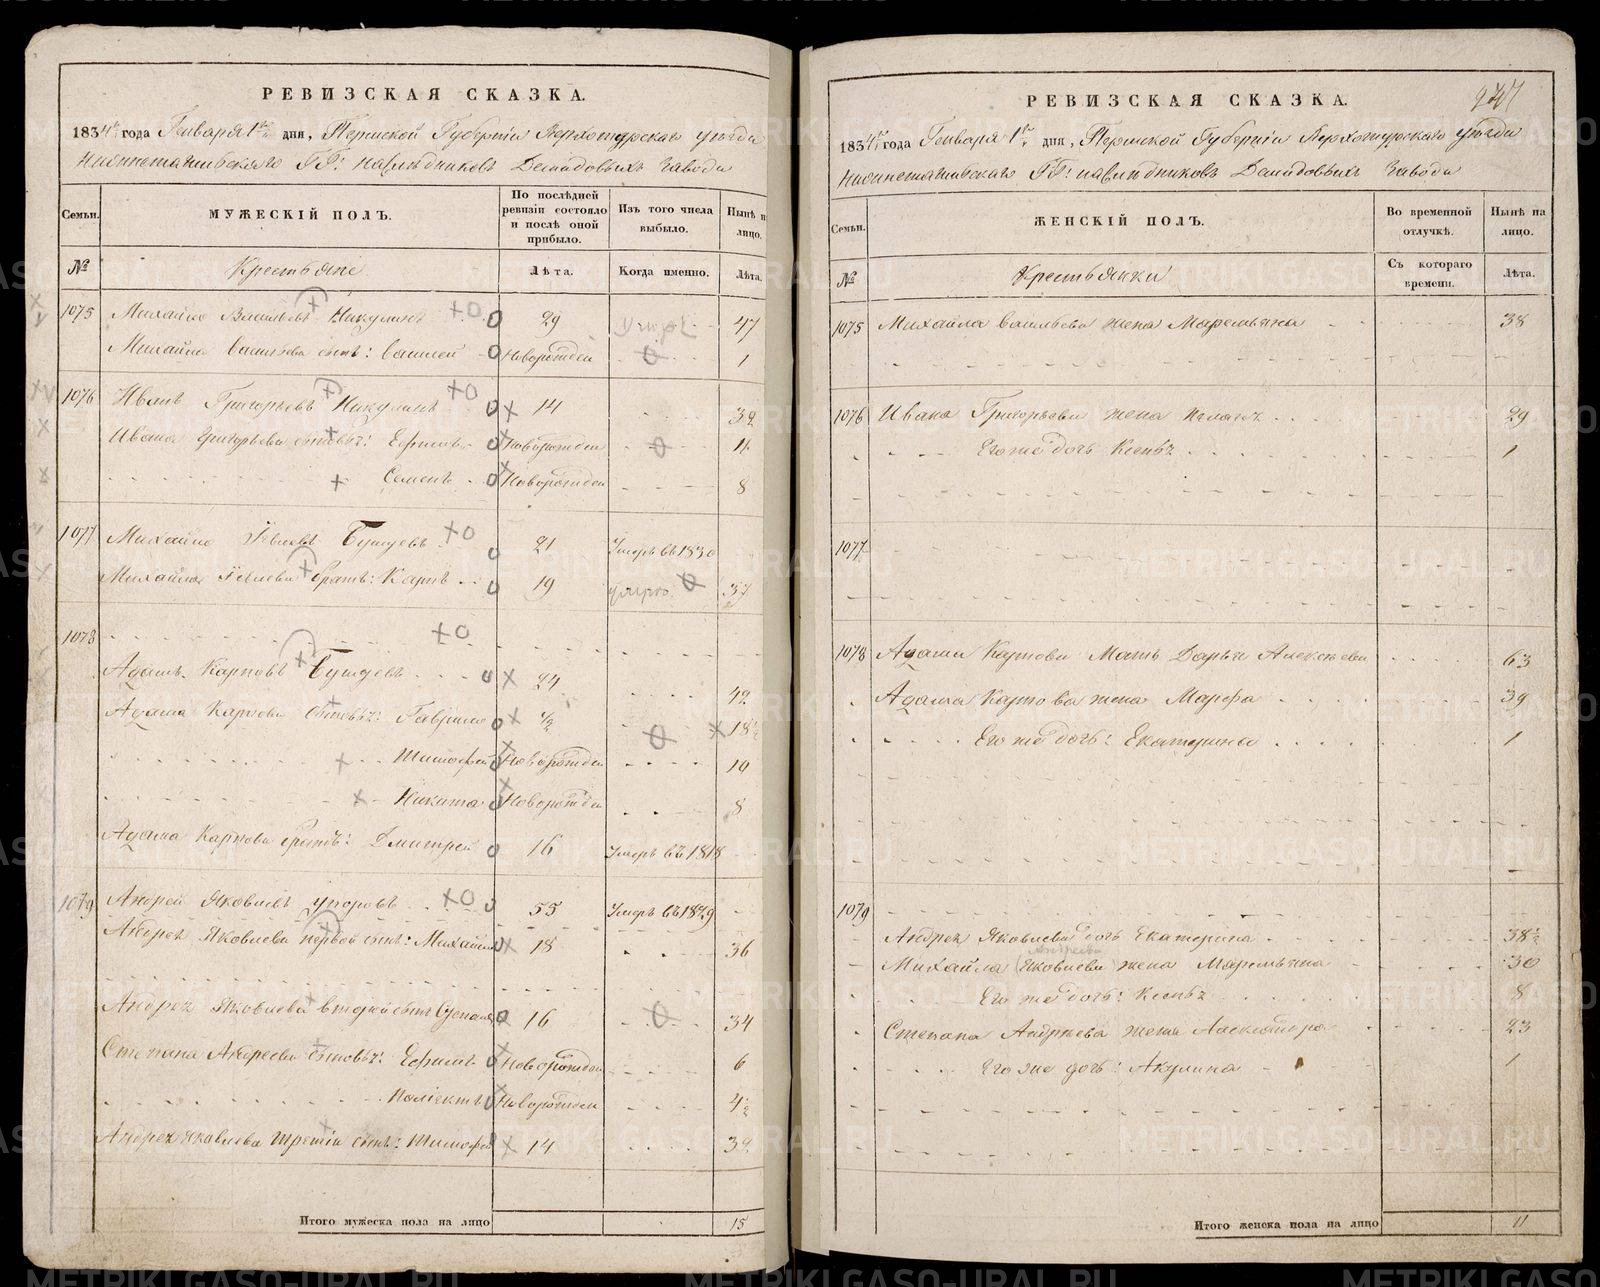 РЕВИЗСКАЯ СКАЗКА.
1834 года Генваря 1 дня, Пермской Губерніи Верхотурскаго уѣзда
Нижнетагильскаго ГГ: наслѣдниковъ Демидовыхъ завода
Семьи. МУЖЕСКІЙ ПОЛЪ. По послѣдней ревизіи состояло и послѣ оной прибыло. Изъ того числа выбыло. Нынѣ на лицо.
№ Крестьяне Лѣта. Когда именно. Лѣта.
1075 Михайло Васильевъ Никулинъ 29 47
Михайла Васильева сынъ: Василей Новорожден 1
1076 Иванъ Григорьевъ Никулинъ 14 32
Ивана Григорьева сыновья: Ефимъ Новорожден 11
Семенъ Новорожден 8
1077 Михайло 21 Умеръ въ 1830
Михайла братъ: Карпъ 19 37
1078
Адамъ Карповъ 24 42
Адама Карпова сыновья: Гаврило 1/2 18 1/2
Тимофей Новорожден 10
Никита Новорожден 8
Адама Карпова братъ: Дмитрей 16 Умеръ въ 1818
1079 Андрей Яковлевъ Упоровъ 55 Умеръ въ 1829
Андрея Яковлева первой сынъ: Михайло 18 36
Андрея Яковлева второй сынъ Степанъ 16 34
Степана Андреева сыновья: Ефимъ Новорожден 6
Полиектъ Новорожден 4 1/2
Андрея Яковлева третій сынъ: Тимофей 14 32
Итого мужеска пола на лицо 15
РЕВИЗСКАЯ СКАЗКА.
1834 года Генваря 1 дня, Пермской Губерніи Верхотурскаго уѣзда
Нижнетагильскаго ГГ: наслѣдниковъ Демидовыхъ завода
Семьи. ЖЕНСКІЙ ПОЛЪ. Во временной отлучкѣ. Нынѣ на лицо.
№ Крестьянки Съ котораго времени. Лѣта.
1075 Михайла Васильева жена Маремьяна 38
1076 Ивана Григорьева жена Пелагея 29
Его же дочь Ксенья 1
1077
1078 Адама Карпова Мать Дарья Алексѣева 63
Адама Карпова жена Марфа 39
Его же дочь: Екатерина 1
1079
Андрея Яковлева дочь Екатерина 38 1/2
Андреева
Михайла (Яковлева) жена Маремьяна 30
Его же дочь: Ксенья 8
Степана Андреева жена Александра 23
Его же дочь: Акулина 1
Итого женска пола на лицо 11
METRIKI.GASO-URAL.RU